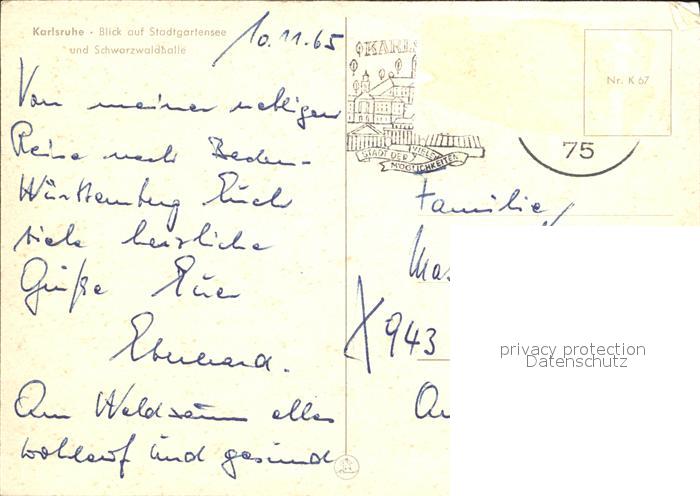 Karlsruhe · Blick auf Stadtgartensee
und Schwarzwaldhalle
10.11.65
Von meiner nebligen
Reise nach Baden-
Württemberg Euch
viele herzliche
Grüße Euer
Eberhard.
Am Waldsaum alles
wohlauf und gesund
KARLS
STADT DER VIELEN
MÖGLICHKEITEN
Nr. K 67
75
Familie
Mas
943
privacy protection
Datenschutz